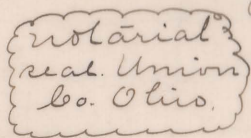 notarial
seal. Union
Co. Ohio.